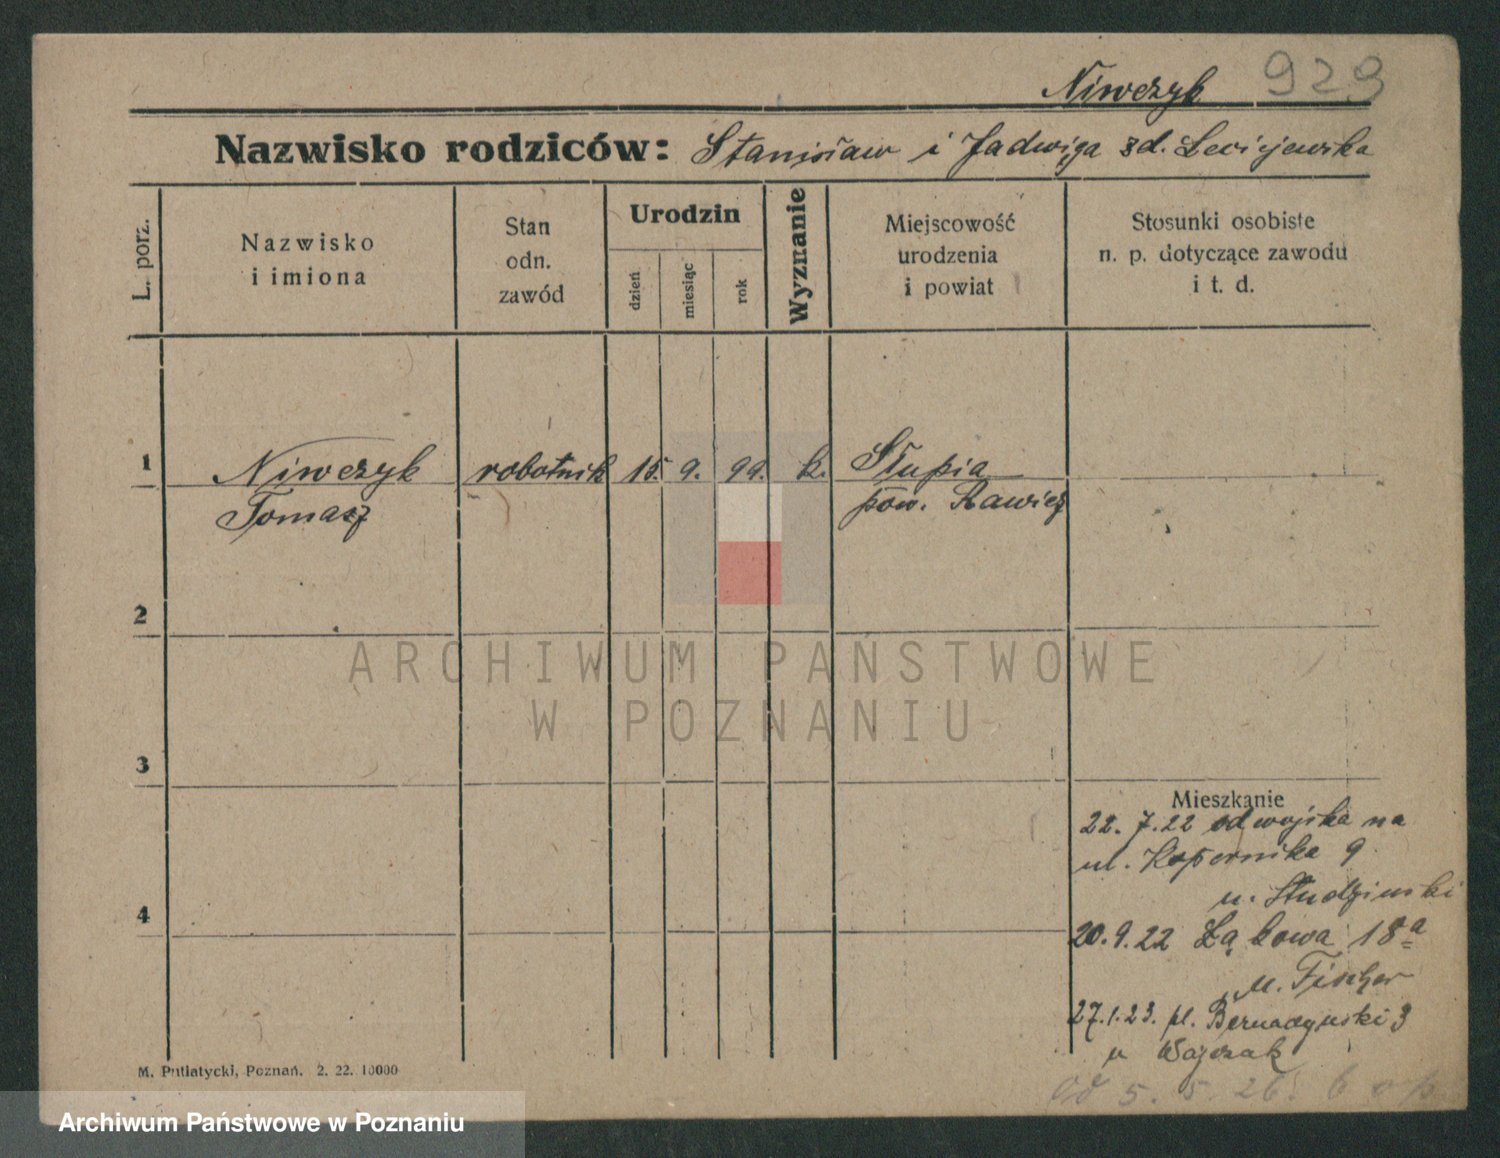 Niwczyk 929
Nazwisko rodziców: Stanisław i Jadwiga zd. Lecicjewska
L. porz.
Nazwisko
i imiona
Stan
odn.
zawód
Urodzin
dzień
miesiąc
rok
Wyznanie
Miejscowość
urodzenia
i powiat
Stosunki osobiste
n. p. dotyczące zawodu
i t. d.
1 Niwczyk robotnik 15. 9. 99. k. Słupia
Tomasz pow. Rawicz
2
ARCHIWUM PAŃSTWOWE
W POZNANIU
3
Mieszkanie
22. 7. 22 od wojska na
ul. Kopernika 9
u. Studzinski
4
20. 9. 22 Łąkowa 18a
u. Fischer
27. 1. 23. pl. Bernadynski 3
u Wajczak
M. Putiatycki, Poznań. 2. 22. 10000
od 5. 5. 26.
Archiwum Państwowe w Poznaniu